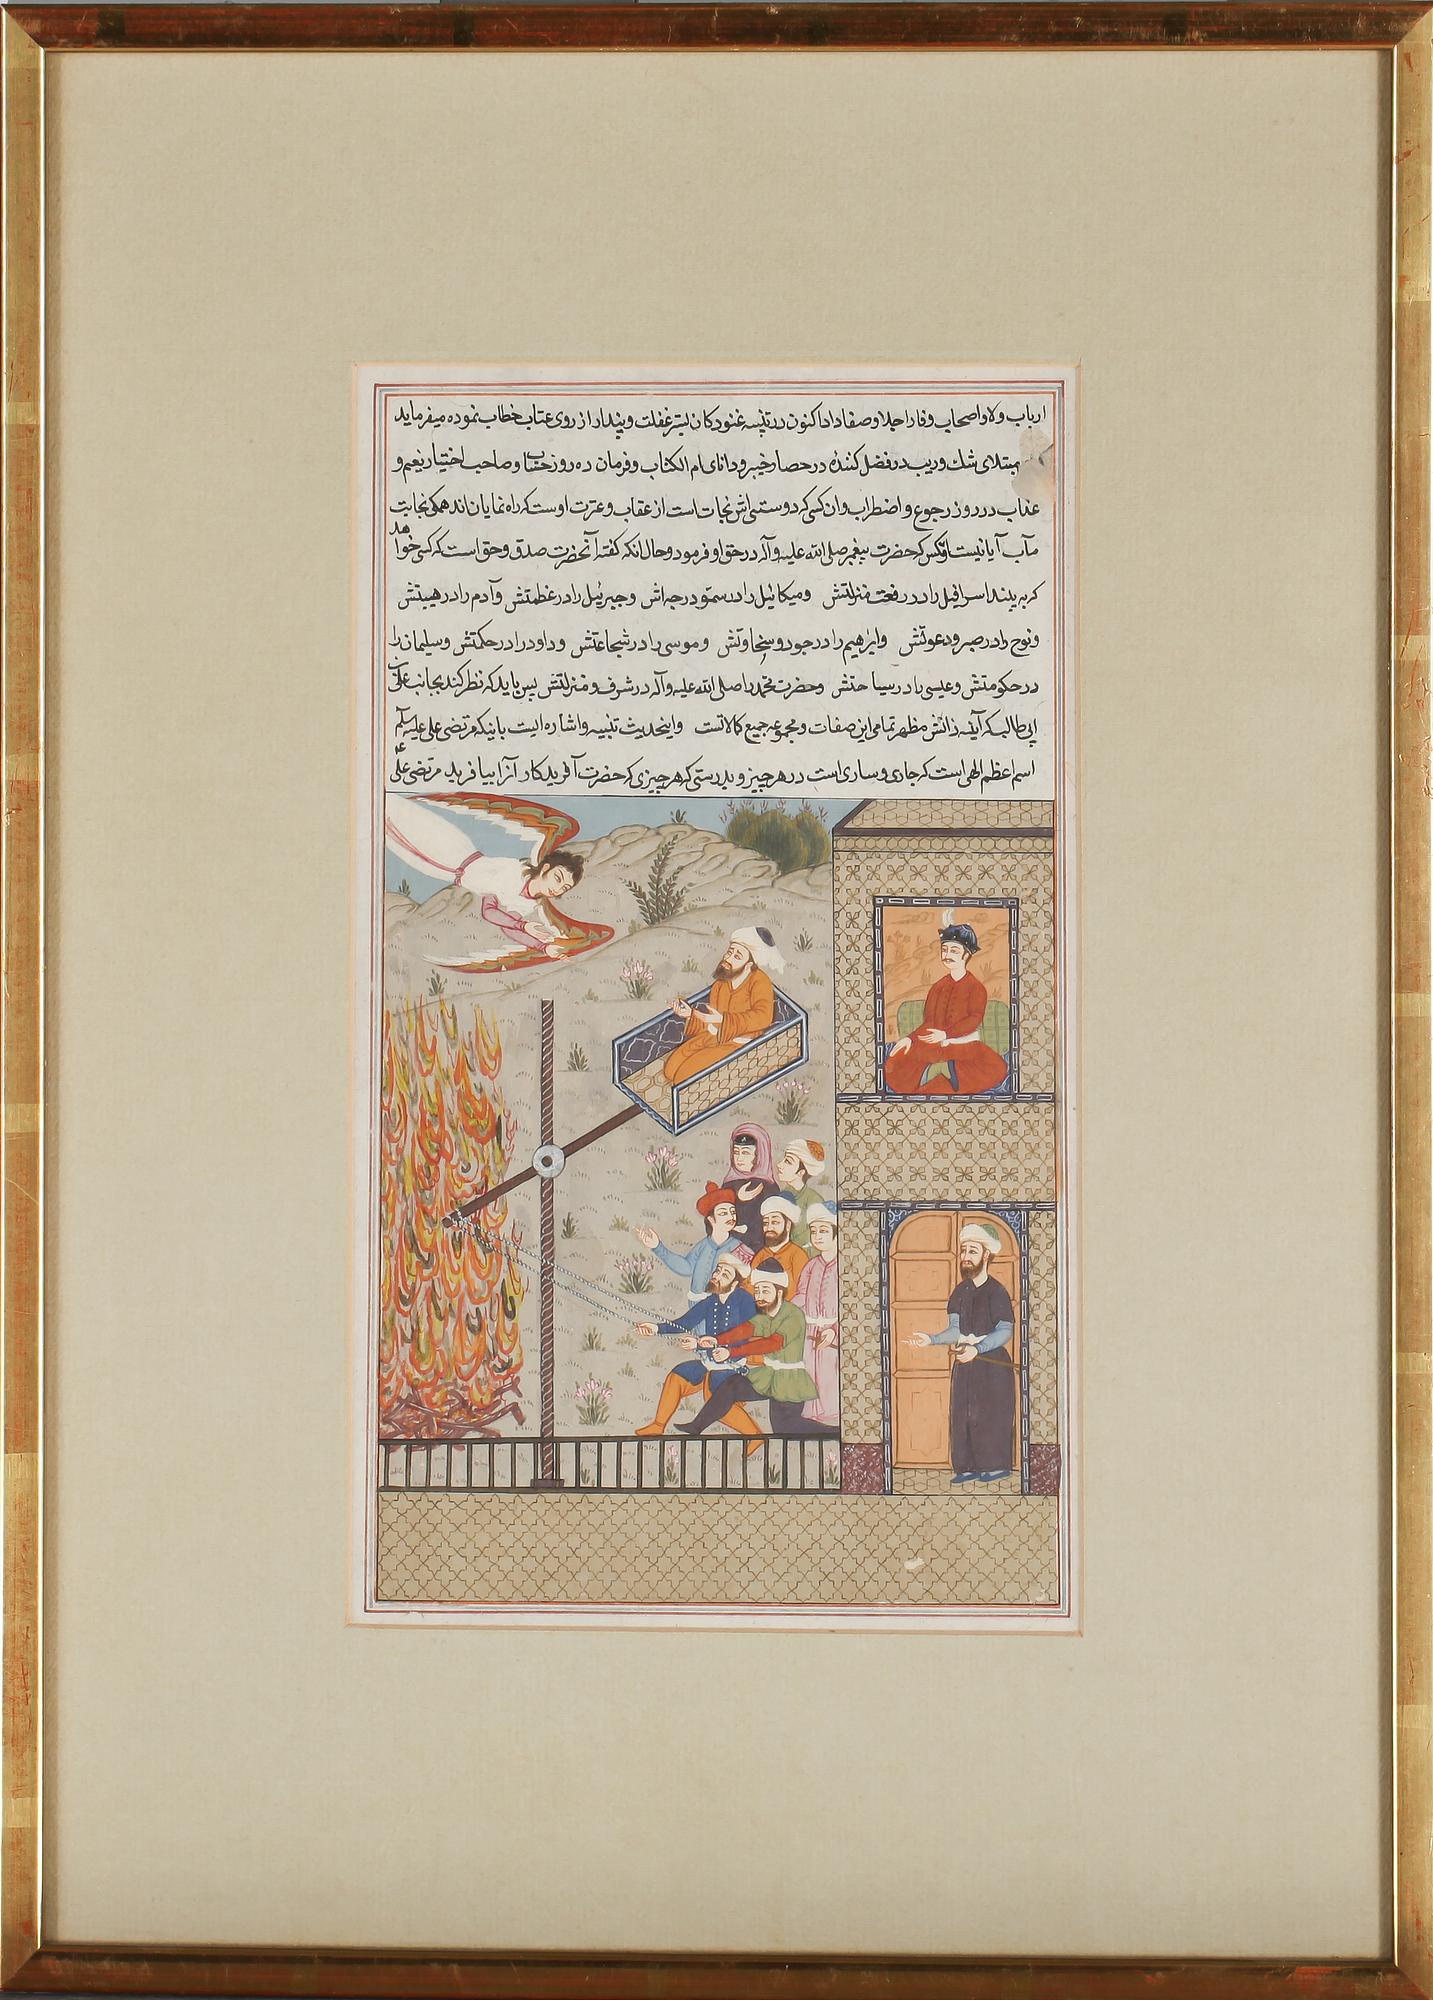 ارباب ولا واصحاب وفار اجلا وصفا داد اکنون در تنبیه غنودکان بستر غفلت وپندار از روی عتاب خطاب نموده میفرماید
مبتلای شك وریب در فضل کنندۀ در حصار خیبر ودانای ام الکتاب وفرمان ده روز حساب وصاحب اختیار نعیم و
عذاب در روز رجوع واضطراب وان کسی که دوستی اش نجات است از عقاب وعترت اوست که راه نمایان اند همکی نجابت
مآب آیا نیست اوکس که حضرت پیغمبر صلی الله علیه وآله در حق او فرمود وحال انکه کفته آنحضرت صدق وحق است که کسی خواهد
که به بیند اسرافیل را در رفعت منزلتش ومیکائیل را در سمو درجه اش وجبرئیل را در عظمتش وآدم را در هیبتش
ونوح را در صبر ودعوتش وابراهیم را در جود وسخاوتش وموسی را در شجاعتش وداود را در حکمتش وسلیمان را
در حکومتش وعیسی را در سیاحتش وحضرت محمد را صلی الله علیه وآله در شرف ومنزلتش پس باید که نظر کند بجانب علی بن
ابی طالب که آینه ذاتش مظهر تمامی این صفات ومجموعه جمیع کمالاتست واینحدیث تنبیه واشاره ایست باینکه مرتضی علی علیه سلم
اسم اعظم الهی است که جاری وساری است در هر چیز وبدرستی که هر چیزی که حضرت آفریدکار آنرا بیافرید مرتضی علی ع